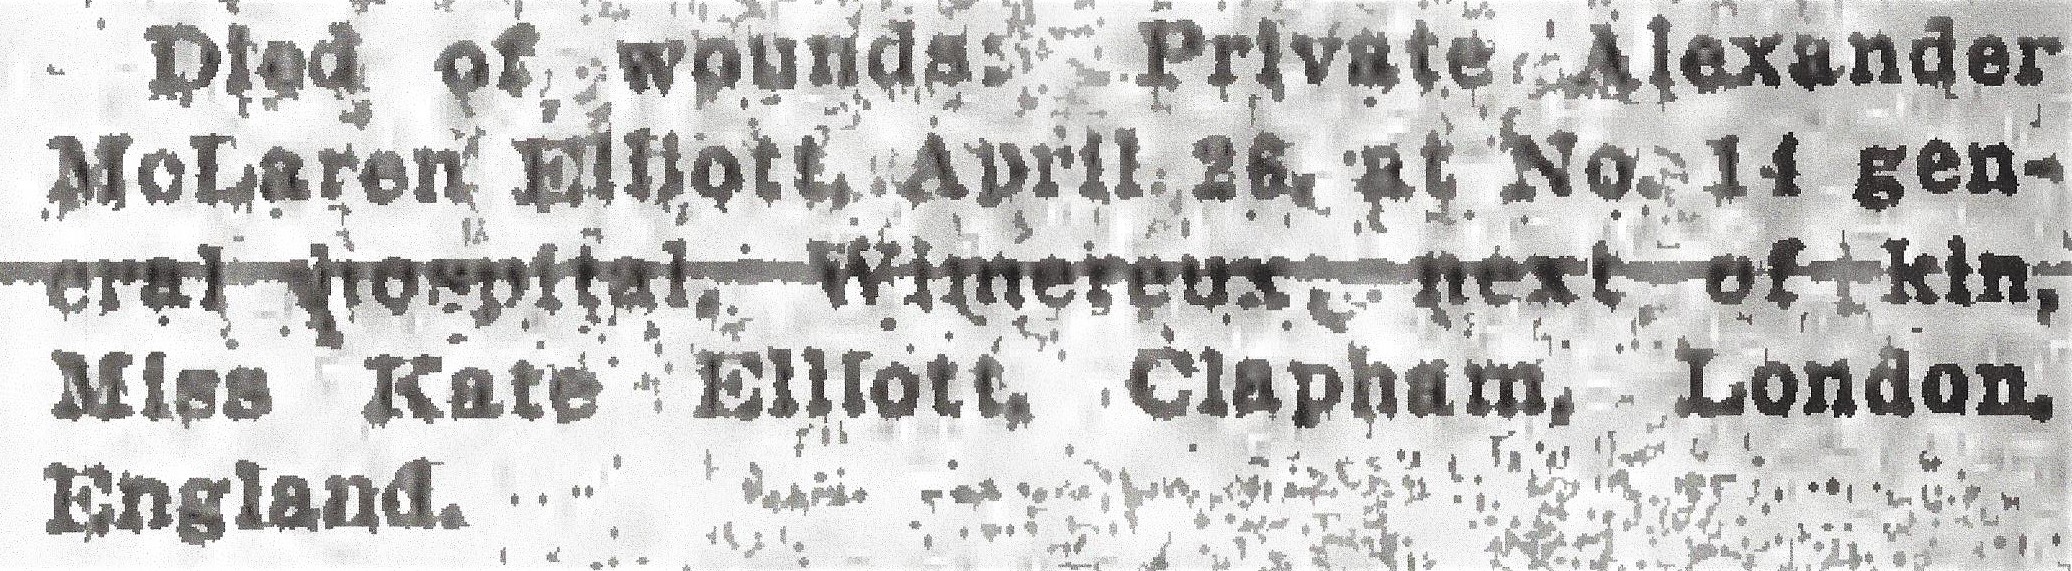 Died of wounds: Private Alexander
McLaren Elliott, April 26, at No. 14 gen-
eral hospital, Wimereux, next of kin,
Miss Kate Elliott, Clapham, London,
England.